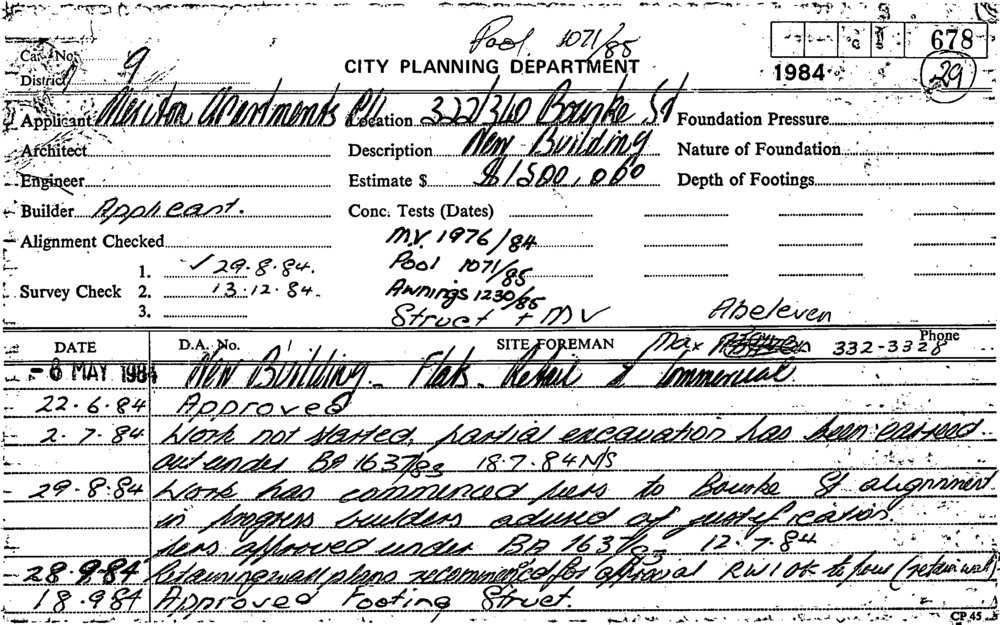 Pool 1071/85
678
Card No.
District 9
CITY PLANNING DEPARTMENT
1984
29
Applicant Meriton Apartments P/L Location 322/340 Bourke St Foundation Pressure
Architect Description New Building Nature of Foundation
Engineer Estimate $ $1500,000 Depth of Footings
Builder Applicant. Conc. Tests (Dates)
Alignment Checked M.V. 1976/84
1. ✓ 29.8.84. Pool 1071/85
Survey Check 2. 13.12.84. Awnings 1230/85
3. Struct + MV Abeleven
DATE D.A. No. SITE FOREMAN Max Phone 332-3328
-8 MAY 1984 New Building - Flats - Retail & Commercial
22.6.84 Approved
2.7.84 Work not started, partial excavation has been carried
out under BA 1637/83 18.7.84 NS
29.8.84 Work has commenced piers to Bourke St alignment
in progress builders advised of justification.
Piers approved under BA 1637/83 12.7.84
28.9.84 Retaining wall plans recommenced for approval RW1 OK to pour (retain wall).
18.9.84 Approved Footing Struct.
CP 45